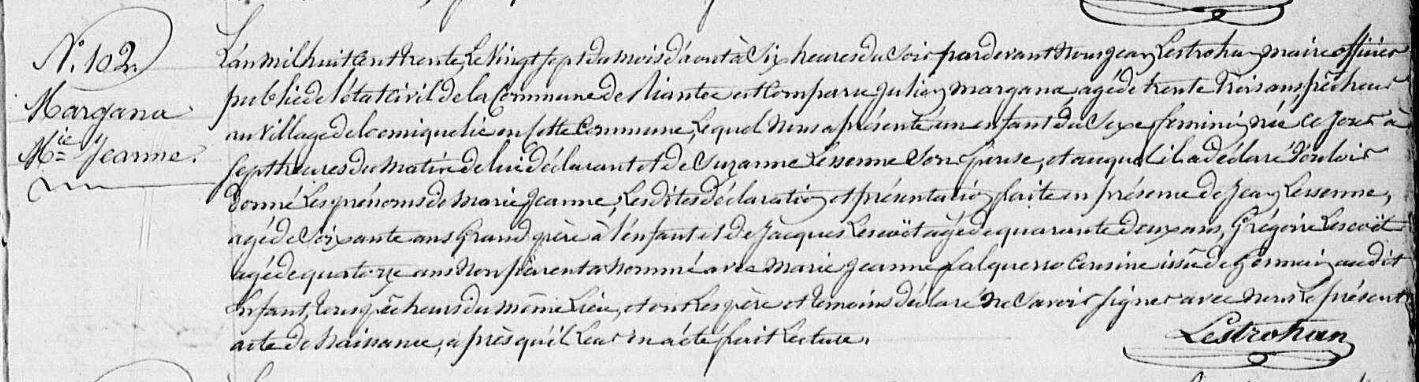 N.º 102.
Margana
M.ie Jeanne.
L'an mil huit cent trente, Le Vingt sept du mois d'aout à Six heures du Soir pardevant Nous Jean Lestrohan Maire officier
public de l'état Civil de la Commune de Riantec est Comparu Julien Margana agé de trente trois ans pêcheur
au village de Locmiquelic en cette Commune, Lequel Nous a présenté un enfant du Sexe feminin, née Ce Jour à
Sept heures du Matin de lui déclarant et de Suzanne Lessenne Son épouse, et auquel il a déclaré Vouloir
donné Les prénoms de Marie Jeanne, Les dites déclaration et présentation faite en présence de Jean Lessenne,
agé de Soixante ans Grand père à l'enfant et de Jacques Lescoët agé de quarante deux ans, Grégoire Lescoët
agé de quatorze ans Non parent a Nommé avec Marie Jeanne falquerro Cousine issüe de Germain audit
Enfant, tous pêcheurs du même Lieu, et ont Les père et temoins déclaré Ne Savoir Signer avec Nous Le présent
acte de Naissance, après qu'il Leur en a été fait Lecture.
Lestrohan